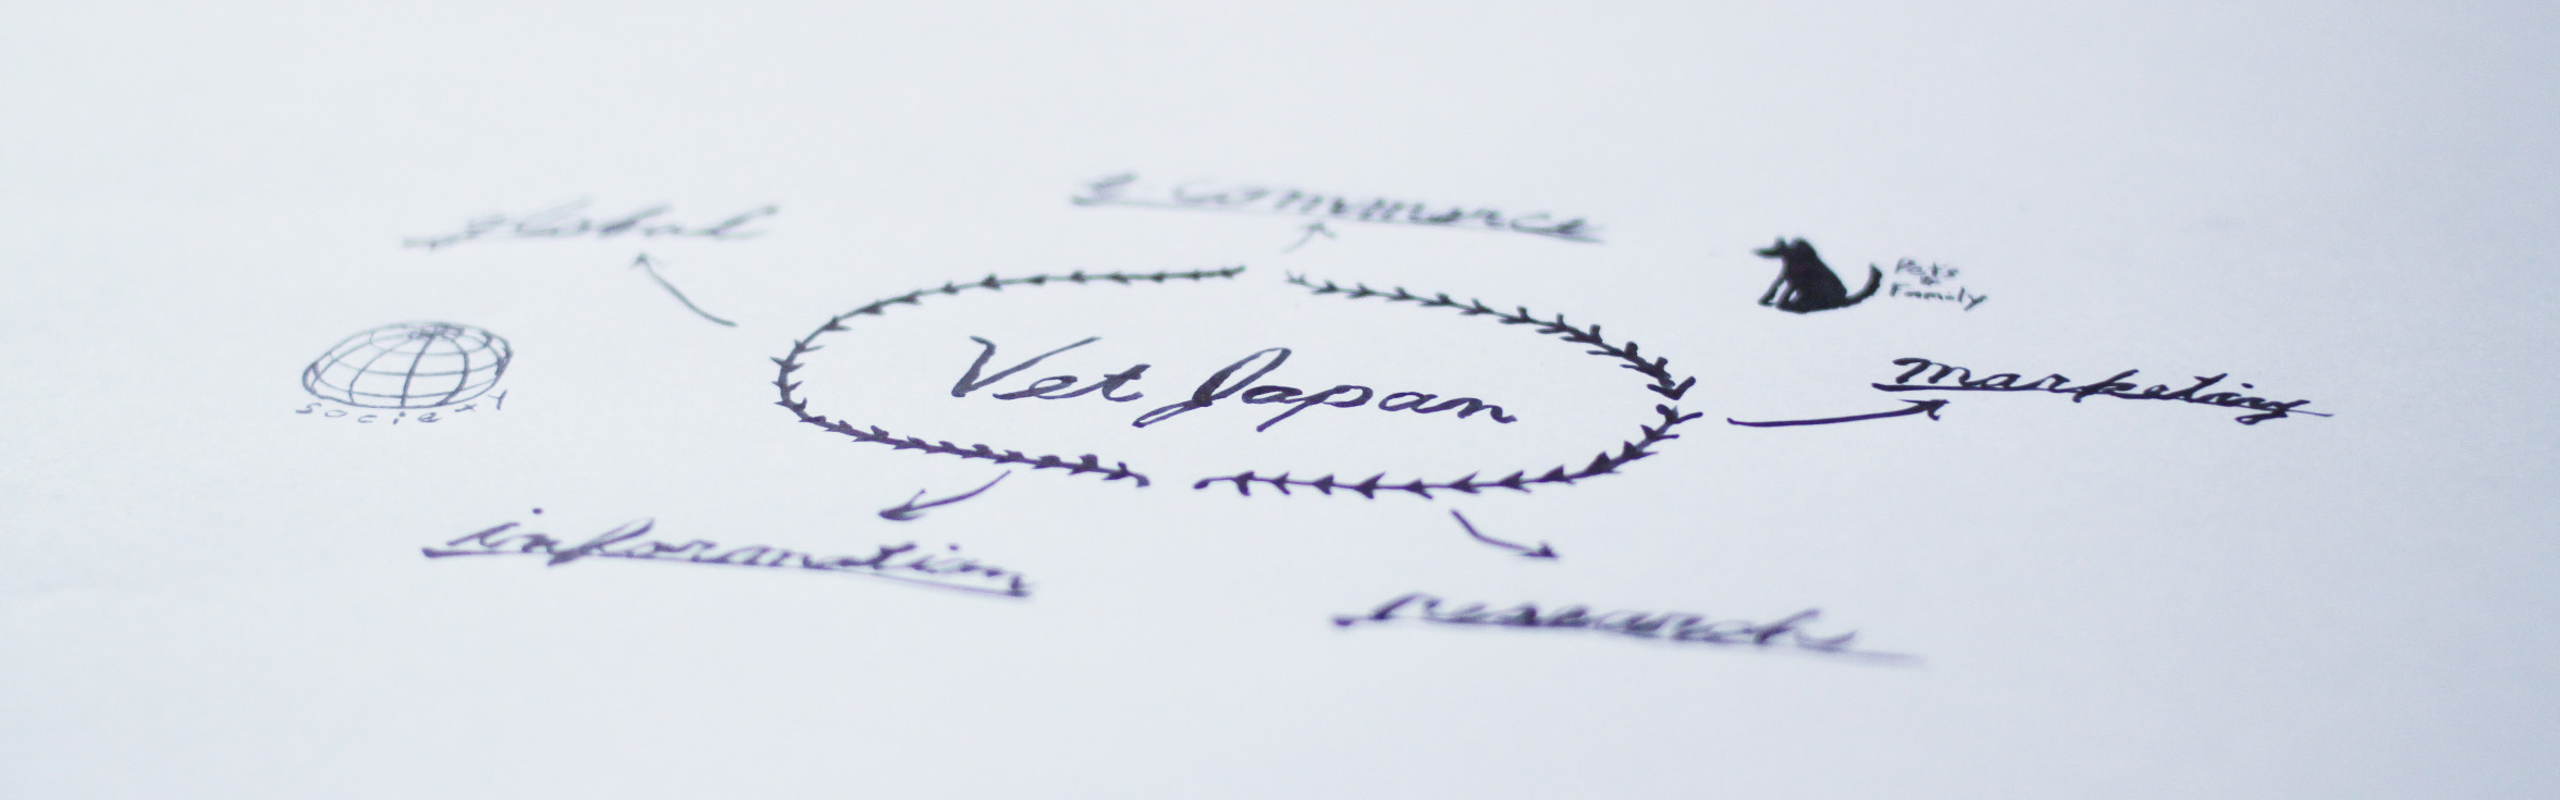 e-commerce
global
Pet's
&
Family
Vet Japan
marketing
society
information
research